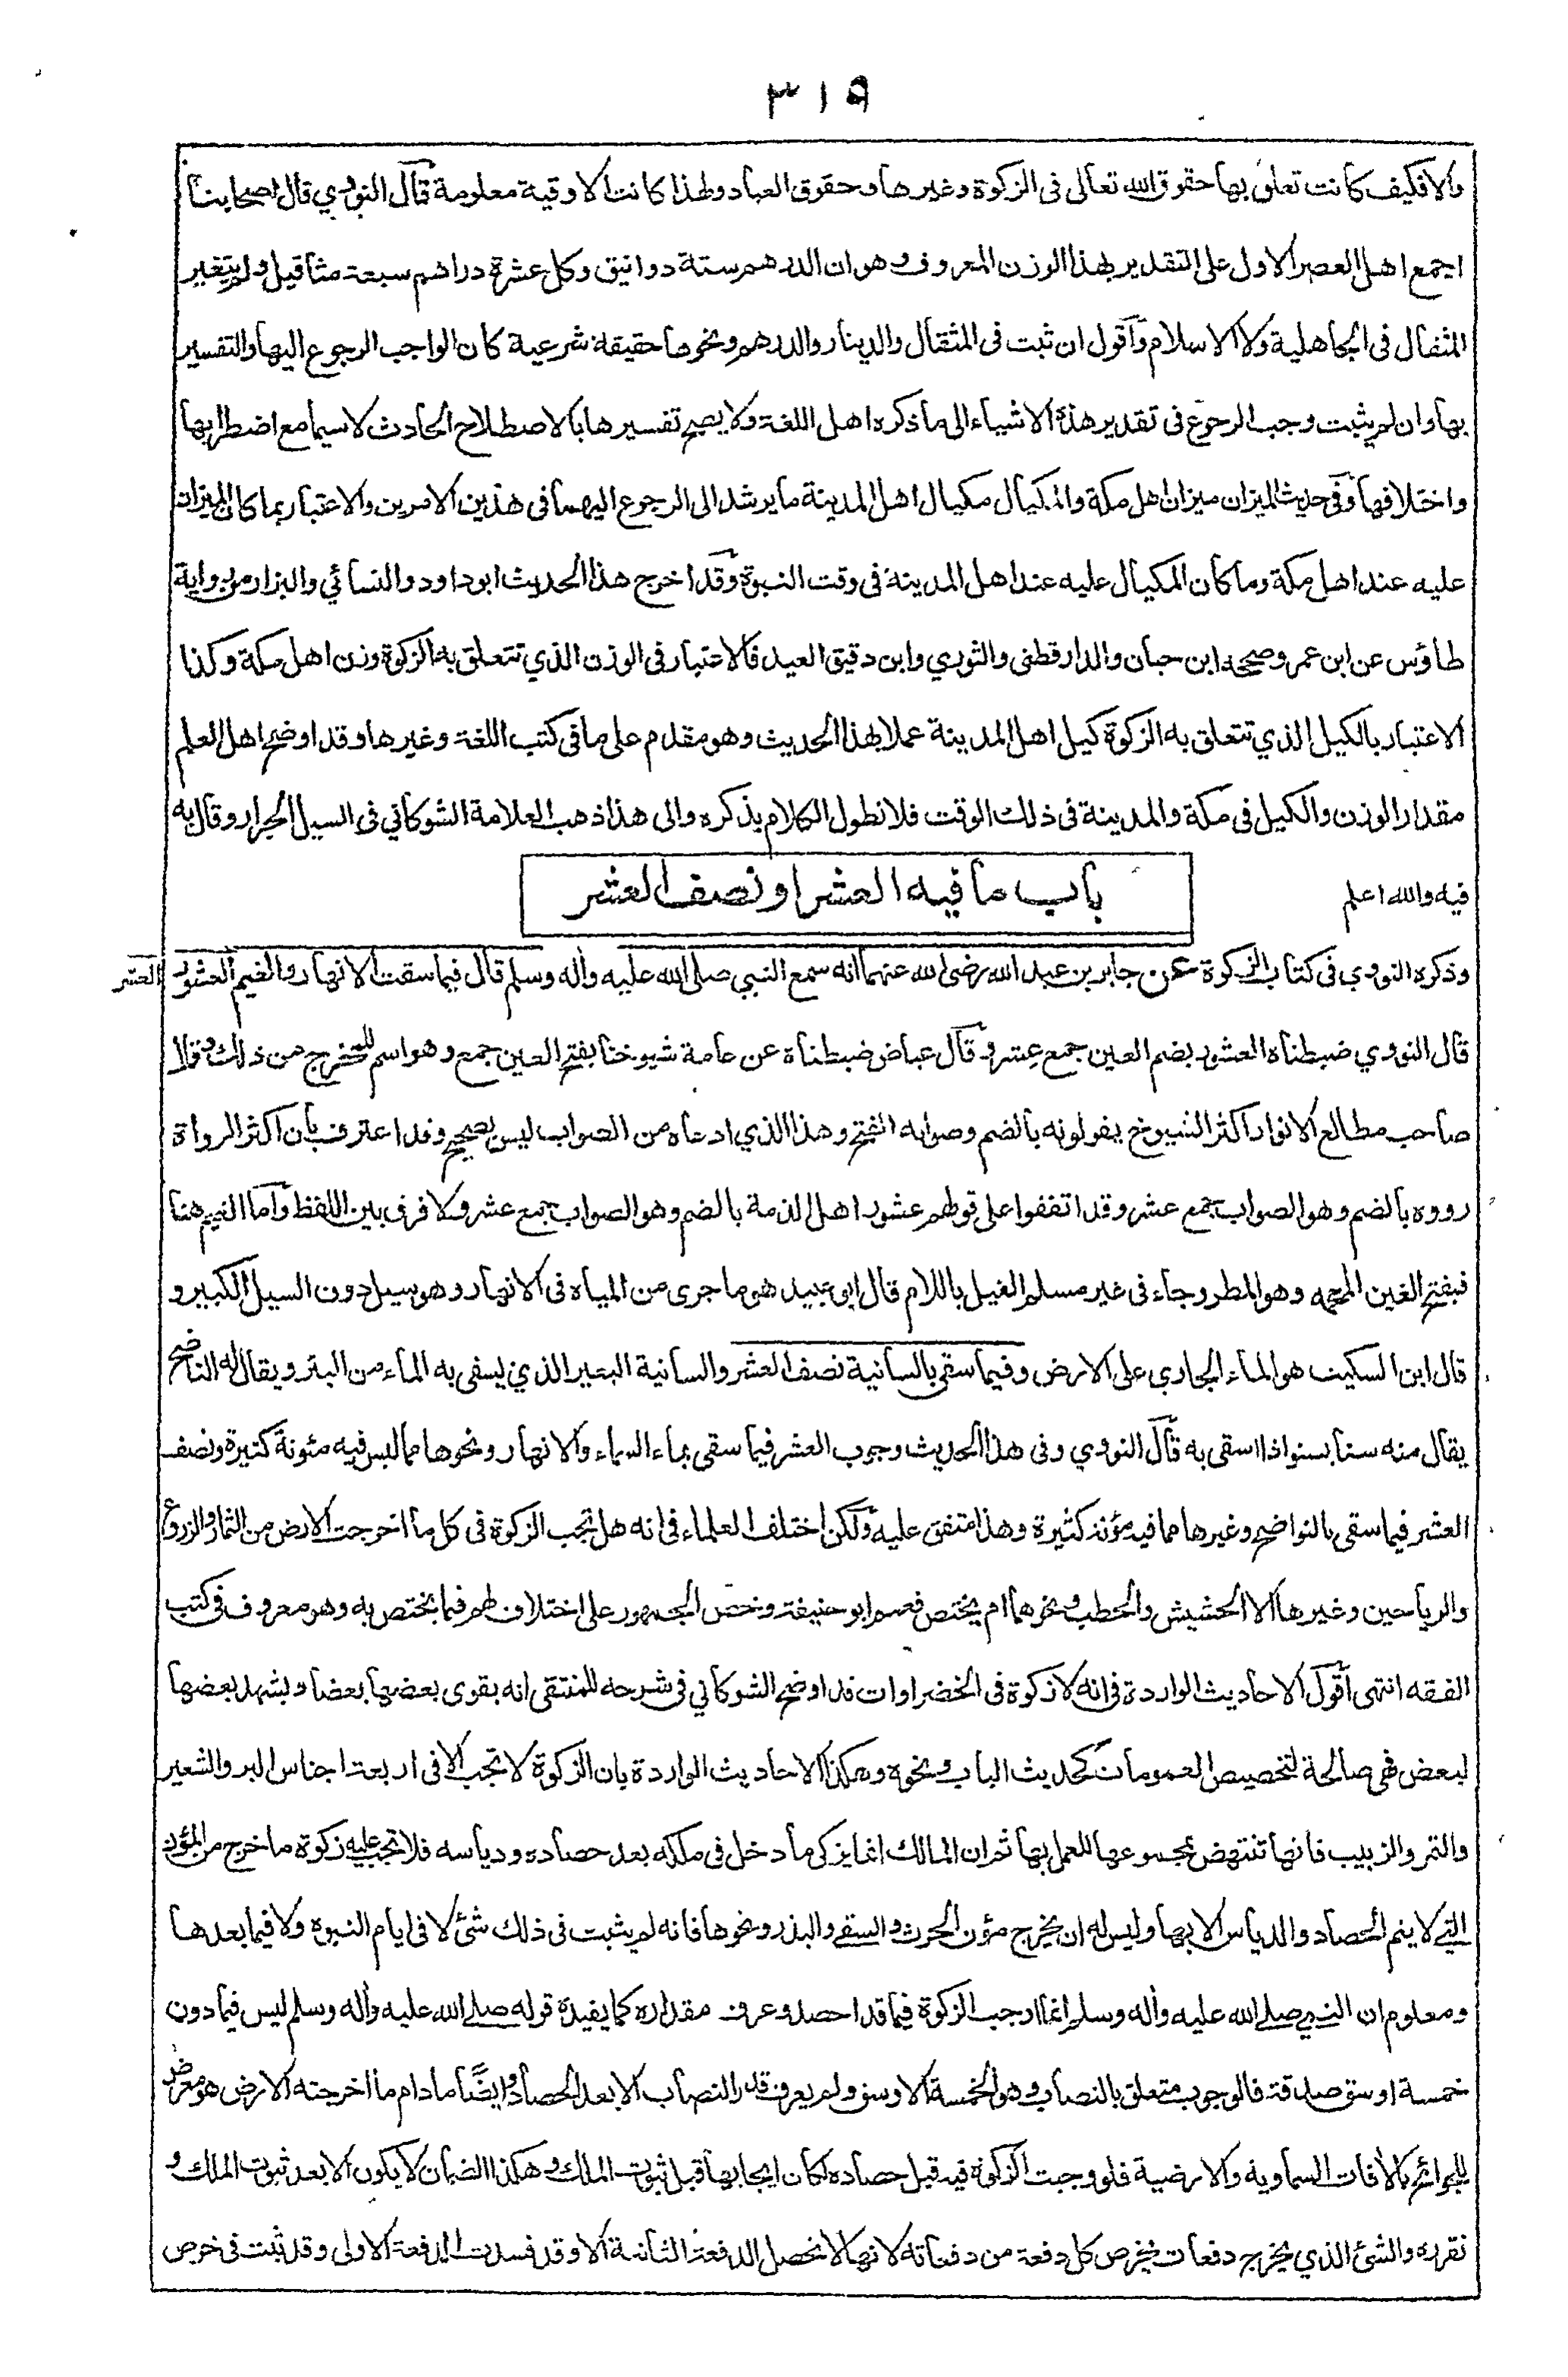 ٣١٩
والا فكيف كانت تعلق بها حقوق الله تعالى فى الزكوة وغيرها وحقوق العباد ولهذا كانت الاوقية معلومة قال النووي قال اصحابنا
اجمع اهل العصر الاول على التقدير بهذا الوزن المعروف وهو ان الدرهم ستة دوانيق وكل عشرة دراهم سبعة مثاقيل ولم يتغير
المثقال فى الجاهلية ولا الاسلام وأقول ان ثبت فى المثقال والدينار والدرهم ونحوها حقيقة شرعية كان الواجب الرجوع اليها والتفسير
بها وان لم يثبت وجب الرجوع فى تقدير هذه الاشياء الى ما ذكره اهل اللغة ولا يصح تفسيرها بالاصطلاح الحادث لا سيما مع اضطرابها
واختلافها وفى حديث الميزان ميزان اهل مكة والمكيال مكيال اهل المدينة ما يرشد الى الرجوع اليهما فى هذين الامرين والاعتبار بما كان الميزان
عليه عند اهل مكة وما كان المكيال عليه عند اهل المدينة فى وقت النبوة وقد اخرج هذا الحديث ابوداود والنسائي والبزار من رواية
طاؤس عن ابن عمر وصححه ابن حبان والدارقطنى والنووي وابن دقيق العيد فالاعتبار فى الوزن الذي تتعلق به الزكوة وزن اهل مكة وكذا
الاعتبار بالكيل الذي تتعلق به الزكوة كيل اهل المدينة عملا بهذا الحديث وهو مقدم على ما فى كتب اللغة وغيرها وقد اوضح اهل العلم
مقدار الوزن والكيل فى مكة والمدينة فى ذلك الوقت فلا نطول الكلام بذكره والى هذا ذهب العلامة الشوكاني فى السيل الجرار وقال به
فيه والله اعلم
باب ما فيه العشر او نصف العشر
وذكره النووي فى كتاب الزكوة عن جابر بن عبد الله رضى الله عنهما انه سمع النبي صلى الله عليه وأله وسلم قال فيما سقت الانهار والغيم العشور العشر
قال النووي ضبطناه العشور بضم العين جمع عشر وقال عياض ضبطناه عن عامة شيوخنا بفتح العين جمع وهو اسم للمخرج من ذلك وقال
صاحب مطالع الانوار اكثر الشيوخ يقولونه بالضم وصوابه الفتح وهذا الذي ادعاه من الصواب ليس بصحيح وقد اعترف بأن اكثر الرواة
رووه بالضم وهو الصواب جمع عشر وقد اتفقوا على قولهم عشور اهل الذمة بالضم وهو الصواب جمع عشر ولا فرق بين اللفظ وأما الغيم هنا
فبفتح الغين المعجمه وهو المطر وجاء فى غير مسلم الغيل باللام قال ابى عبيد هو ما جرى من المياه فى الانهار وهو سيل دون السيل الكبير و
قال ابن السكيت هو الماء الجاري على الارض وفيما سقى بالسانية نصف العشر والسانية البعير الذي يسقى به الماء من البئر ويقال له الناضح
يقال منه سنا يسنو اذا اسقى به قال النووي وفى هذا الحديث وجوب العشر فيما سقى بماء السماء والانهار ونحوها مما ليس فيه مئونة كثيرة ونصف
العشر فيما سقى بالنواضح وغيرها مما فيه مؤنة كثيرة وهذا متفق عليه ولكن اختلف العلماء فى انه هل تجب الزكوة فى كل ما اخرجت الارض من الثمار والزروع
والرياحين وغيرها الا الحشيش والحطب ونحوهما ام يختص فعمم ابو حنيفة وخص الجمهور على اختلاف لهم فيما يختص به وهو معروف فى كتب
الفقه انتهى أقول الاحاديث الواردة فى انه لا زكوة فى الخضراوات قد اوضح الشوكاني فى شرحه للمنتقى انه يقوى بعضها بعضا ويشهد بعضها
لبعض فهى صالحة لتخصيص العمومات كحديث الباب ونحوه وهكذا الاحاديث الواردة بان الزكوة لا تجب الا فى اربعة اجناس البر والشعير
والتمر والزبيب فانها تنتهض بمجموعها للعمل بها ثم ان المالك انما يزكى ما دخل فى ملكه بعد حصاده ودياسه فلا تجب عليه زكوة ما خرج من المؤن
التى لا يتم الحصاد والدياس الا بها وليس له ان يخرج مؤن الحرث والسقى والبذر ونحوها فانه لم يثبت فى ذلك شئ لا فى ايام النبوه ولا فيما بعدها
ومعلوم ان النبي صلى الله عليه وأله وسلم انما اوجب الزكوة فيما قد احصد وعرف مقداره كما يفيده قوله صلى الله عليه وأله وسلم ليس فيما دون
خمسة اوسق صدقة فالوجوب متعلق بالنصاب وهو الخمسة الاوسق ولم يعرف قدر النصاب الا بعد الحصاد وايضًا ما دام ما اخرجته الارض هو معرض
للجوائح كالأفات السماوية والارضية فلو وجبت الزكوة فيه قبل حصاده لكان ايجابها قبل ثبوت الملك وهكذا الضمان لا يكون الا بعد ثبوت الملك و
تقرره والشئ الذي يخرج دفعات يخرص كل دفعة من دفعاته لانها لا تحصل الدفعة الثانية الا وقد فسدت الدفعة الاولى وقد ثبت فى خرص